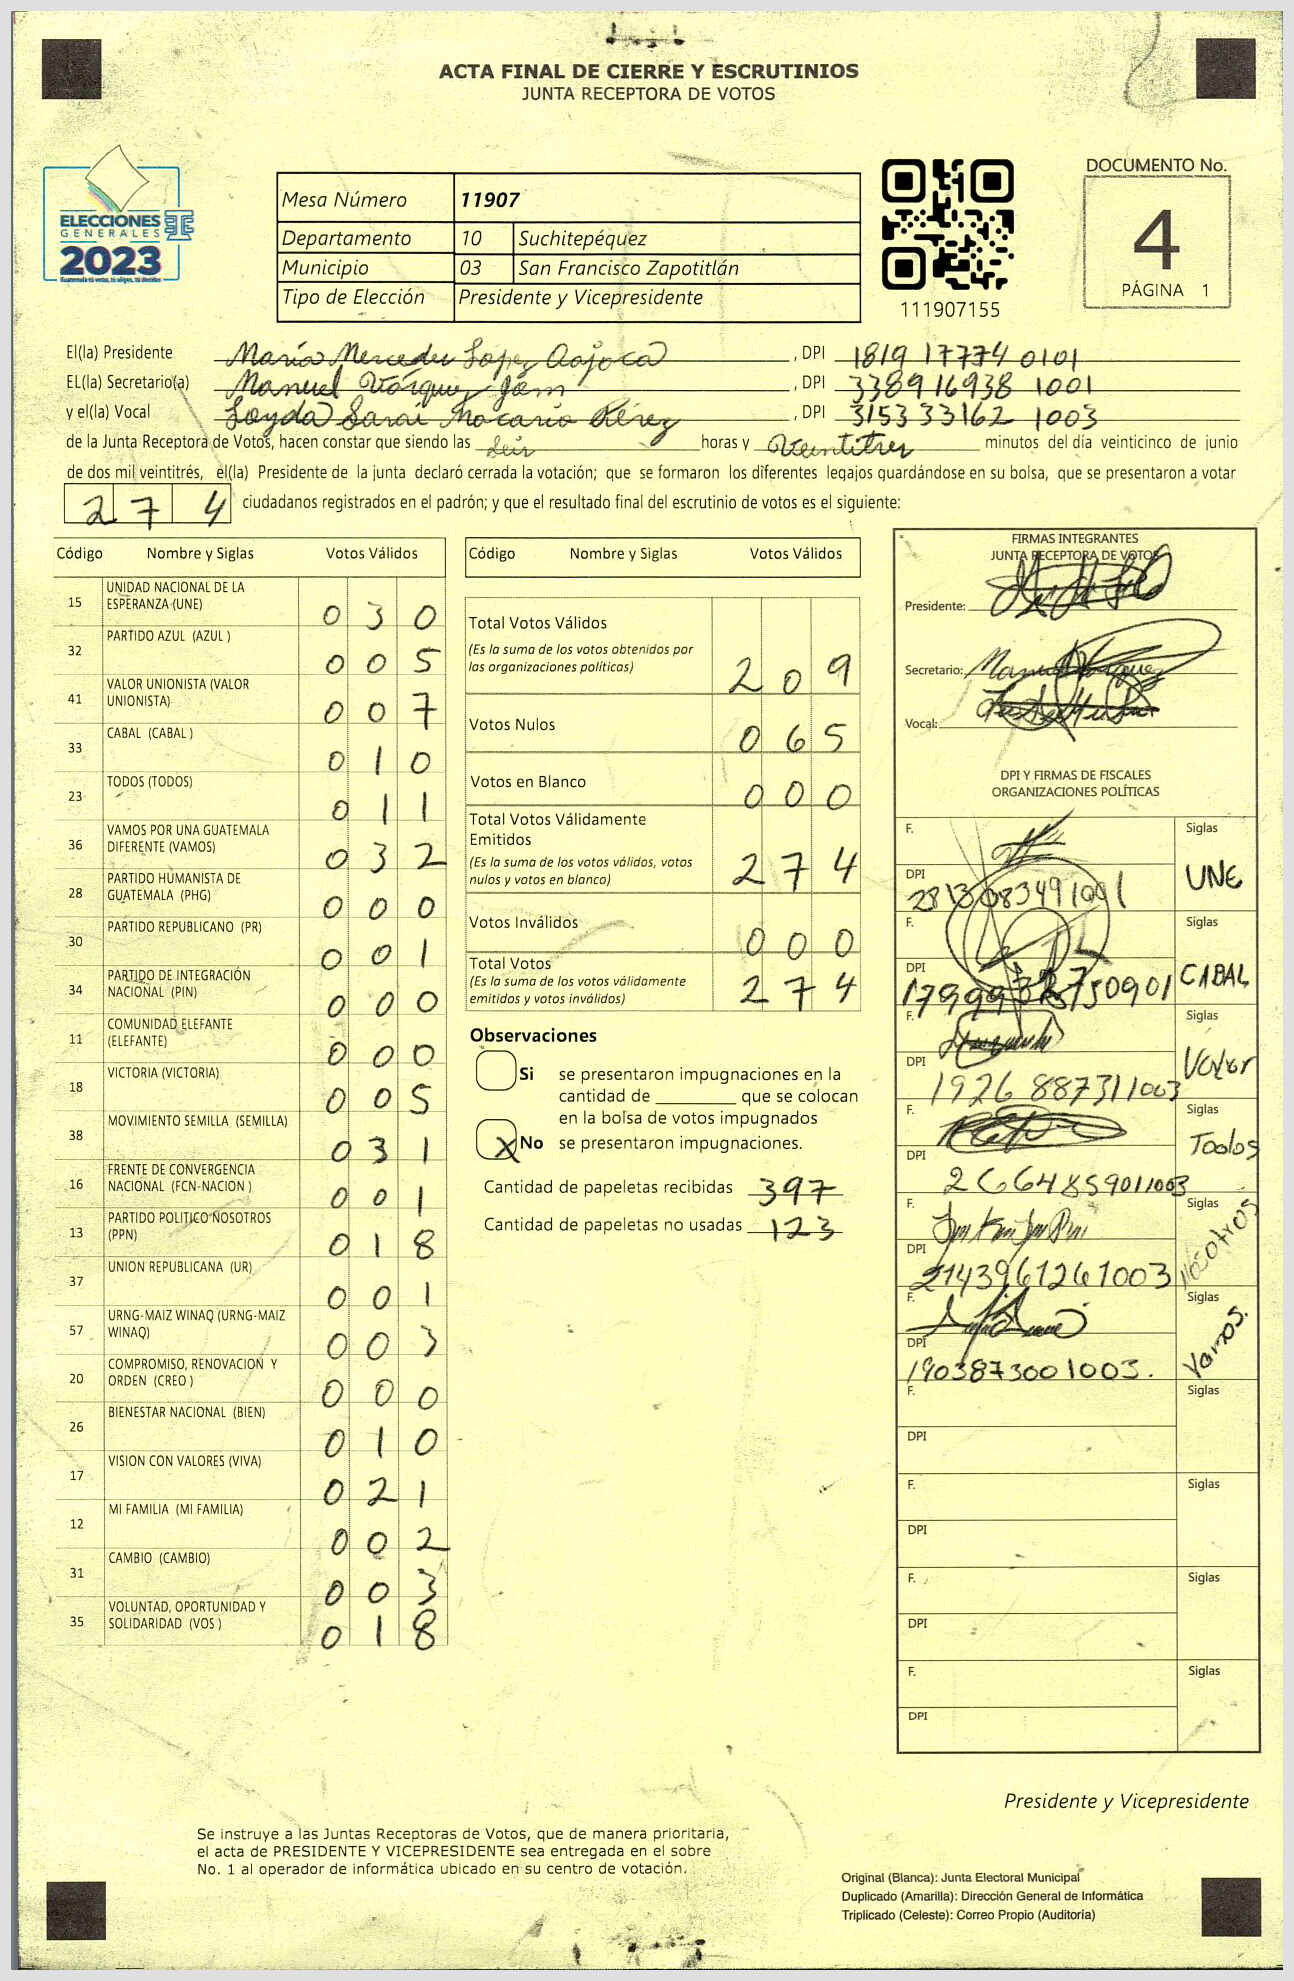 ACTA FINAL DE CIERRE Y ESCRUTINIOS
JUNTA RECEPTORA DE VOTOS
ELECCIONES
GENERALES
2023
Mesa Número 11907
Departamento 10 Suchitepéquez
Municipio 03 San Francisco Zapotitlán
Tipo de Elección Presidente y Vicepresidente
111907155
DOCUMENTO No.
4
PÁGINA 1
El(la) Presidente María Mercedes López , DPI 1819 17774 0101
EL(la) Secretario(a) Manuel Vásquez , DPI 3389 16938 1001
y el(la) Vocal Loyda Sarai Macario Pérez , DPI 3153 33162 1003
de la Junta Receptora de Votos, hacen constar que siendo las seis horas y Veintitres minutos del día veinticinco de junio
de dos mil veintitrés, el(la) Presidente de la junta declaró cerrada la votación; que se formaron los diferentes legajos guardándose en su bolsa, que se presentaron a votar
274 ciudadanos registrados en el padrón; y que el resultado final del escrutinio de votos es el siguiente:
Código Nombre y Siglas Votos Válidos
15 UNIDAD NACIONAL DE LA ESPERANZA (UNE) 030
32 PARTIDO AZUL (AZUL ) 005
41 VALOR UNIONISTA (VALOR UNIONISTA) 007
33 CABAL (CABAL ) 010
23 TODOS (TODOS) 011
36 VAMOS POR UNA GUATEMALA DIFERENTE (VAMOS) 032
28 PARTIDO HUMANISTA DE GUATEMALA (PHG) 000
30 PARTIDO REPUBLICANO (PR) 001
34 PARTIDO DE INTEGRACIÓN NACIONAL (PIN) 000
11 COMUNIDAD ELEFANTE (ELEFANTE) 000
18 VICTORIA (VICTORIA) 005
38 MOVIMIENTO SEMILLA (SEMILLA) 031
16 FRENTE DE CONVERGENCIA NACIONAL (FCN-NACION ) 001
13 PARTIDO POLITICO NOSOTROS (PPN) 018
37 UNION REPUBLICANA (UR) 001
57 URNG-MAIZ WINAQ (URNG-MAIZ WINAQ) 003
20 COMPROMISO, RENOVACION Y ORDEN (CREO ) 000
26 BIENESTAR NACIONAL (BIEN) 010
17 VISION CON VALORES (VIVA) 021
12 MI FAMILIA (MI FAMILIA) 002
31 CAMBIO (CAMBIO) 003
35 VOLUNTAD, OPORTUNIDAD Y SOLIDARIDAD (VOS ) 018
Código Nombre y Siglas Votos Válidos
Total Votos Válidos 209
(Es la suma de los votos obtenidos por
las organizaciones políticas)
Votos Nulos 065
Votos en Blanco 000
Total Votos Válidamente
Emitidos 274
(Es la suma de los votos válidos, votos
nulos y votos en blanco)
Votos Inválidos 000
Total Votos 274
(Es la suma de los votos válidamente
emitidos y votos inválidos)
Observaciones
Si se presentaron impugnaciones en la
cantidad de ________ que se colocan
en la bolsa de votos impugnados
X No se presentaron impugnaciones.
Cantidad de papeletas recibidas 397
Cantidad de papeletas no usadas 123
FIRMAS INTEGRANTES
JUNTA RECEPTORA DE VOTOS
Presidente:
Secretario: Manuel Vásquez
Vocal:
DPI Y FIRMAS DE FISCALES
ORGANIZACIONES POLÍTICAS
F. Siglas
DPI 2813083491001 UNE
F. Siglas
DPI CABAL
F. Siglas
DPI 1926 887311003 Valor
F. Siglas
DPI 2664859011003 Todos
F. Siglas
DPI 2143961261003 Nosotros
F. Siglas
DPI 1903873001003. Vamos.
F. Siglas
DPI
F. Siglas
DPI
F. Siglas
DPI
F. Siglas
DPI
Presidente y Vicepresidente
Se instruye a las Juntas Receptoras de Votos, que de manera prioritaria,
el acta de PRESIDENTE Y VICEPRESIDENTE sea entregada en el sobre
No. 1 al operador de informática ubicado en su centro de votación.
Original (Blanca): Junta Electoral Municipal
Duplicado (Amarilla): Dirección General de Informática
Triplicado (Celeste): Correo Propio (Auditoría)